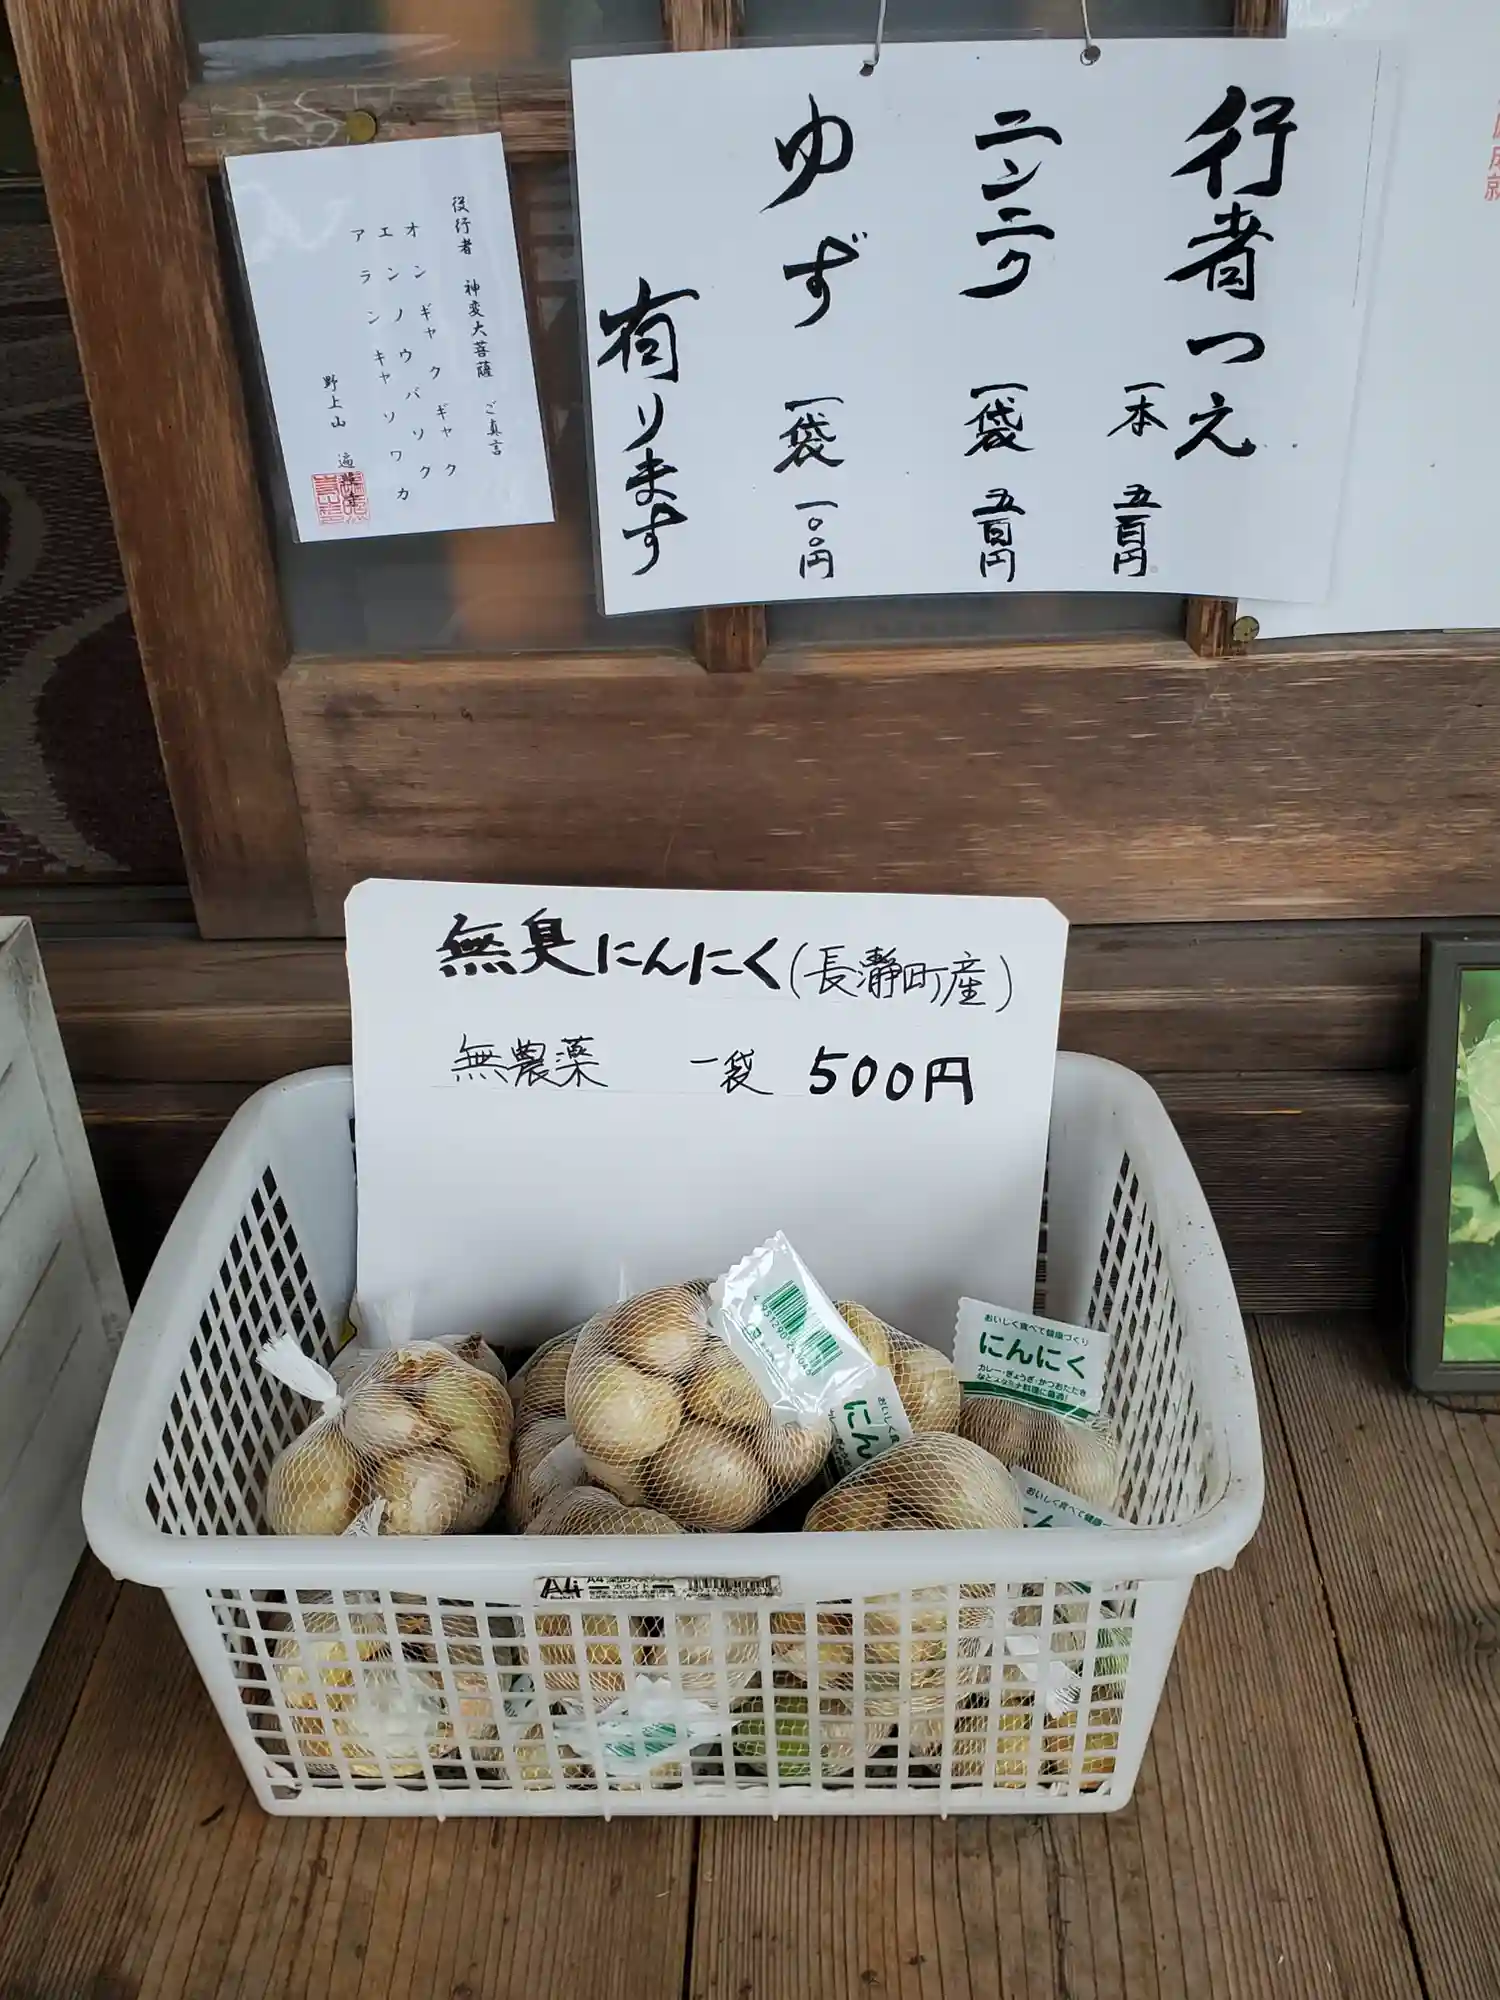 行者つえ
一本 五百円
ニンニク
一袋 五百円
ゆず
一袋 一〇〇円
有ります
役行者 神変大菩薩 ご真言
オン ギャクギャク
エンノウバソク
アランキャ ソワカ
野上山 遍
無臭にんにく(長瀞町産)
無農薬 一袋 500円
おいしく食べて健康づくり
にんにく
カレー・ぎょうざ・かつおたたき
などスタミナ料理に最適!
おいしく食
にん
おいしく食べて健康
A4
ホワイト